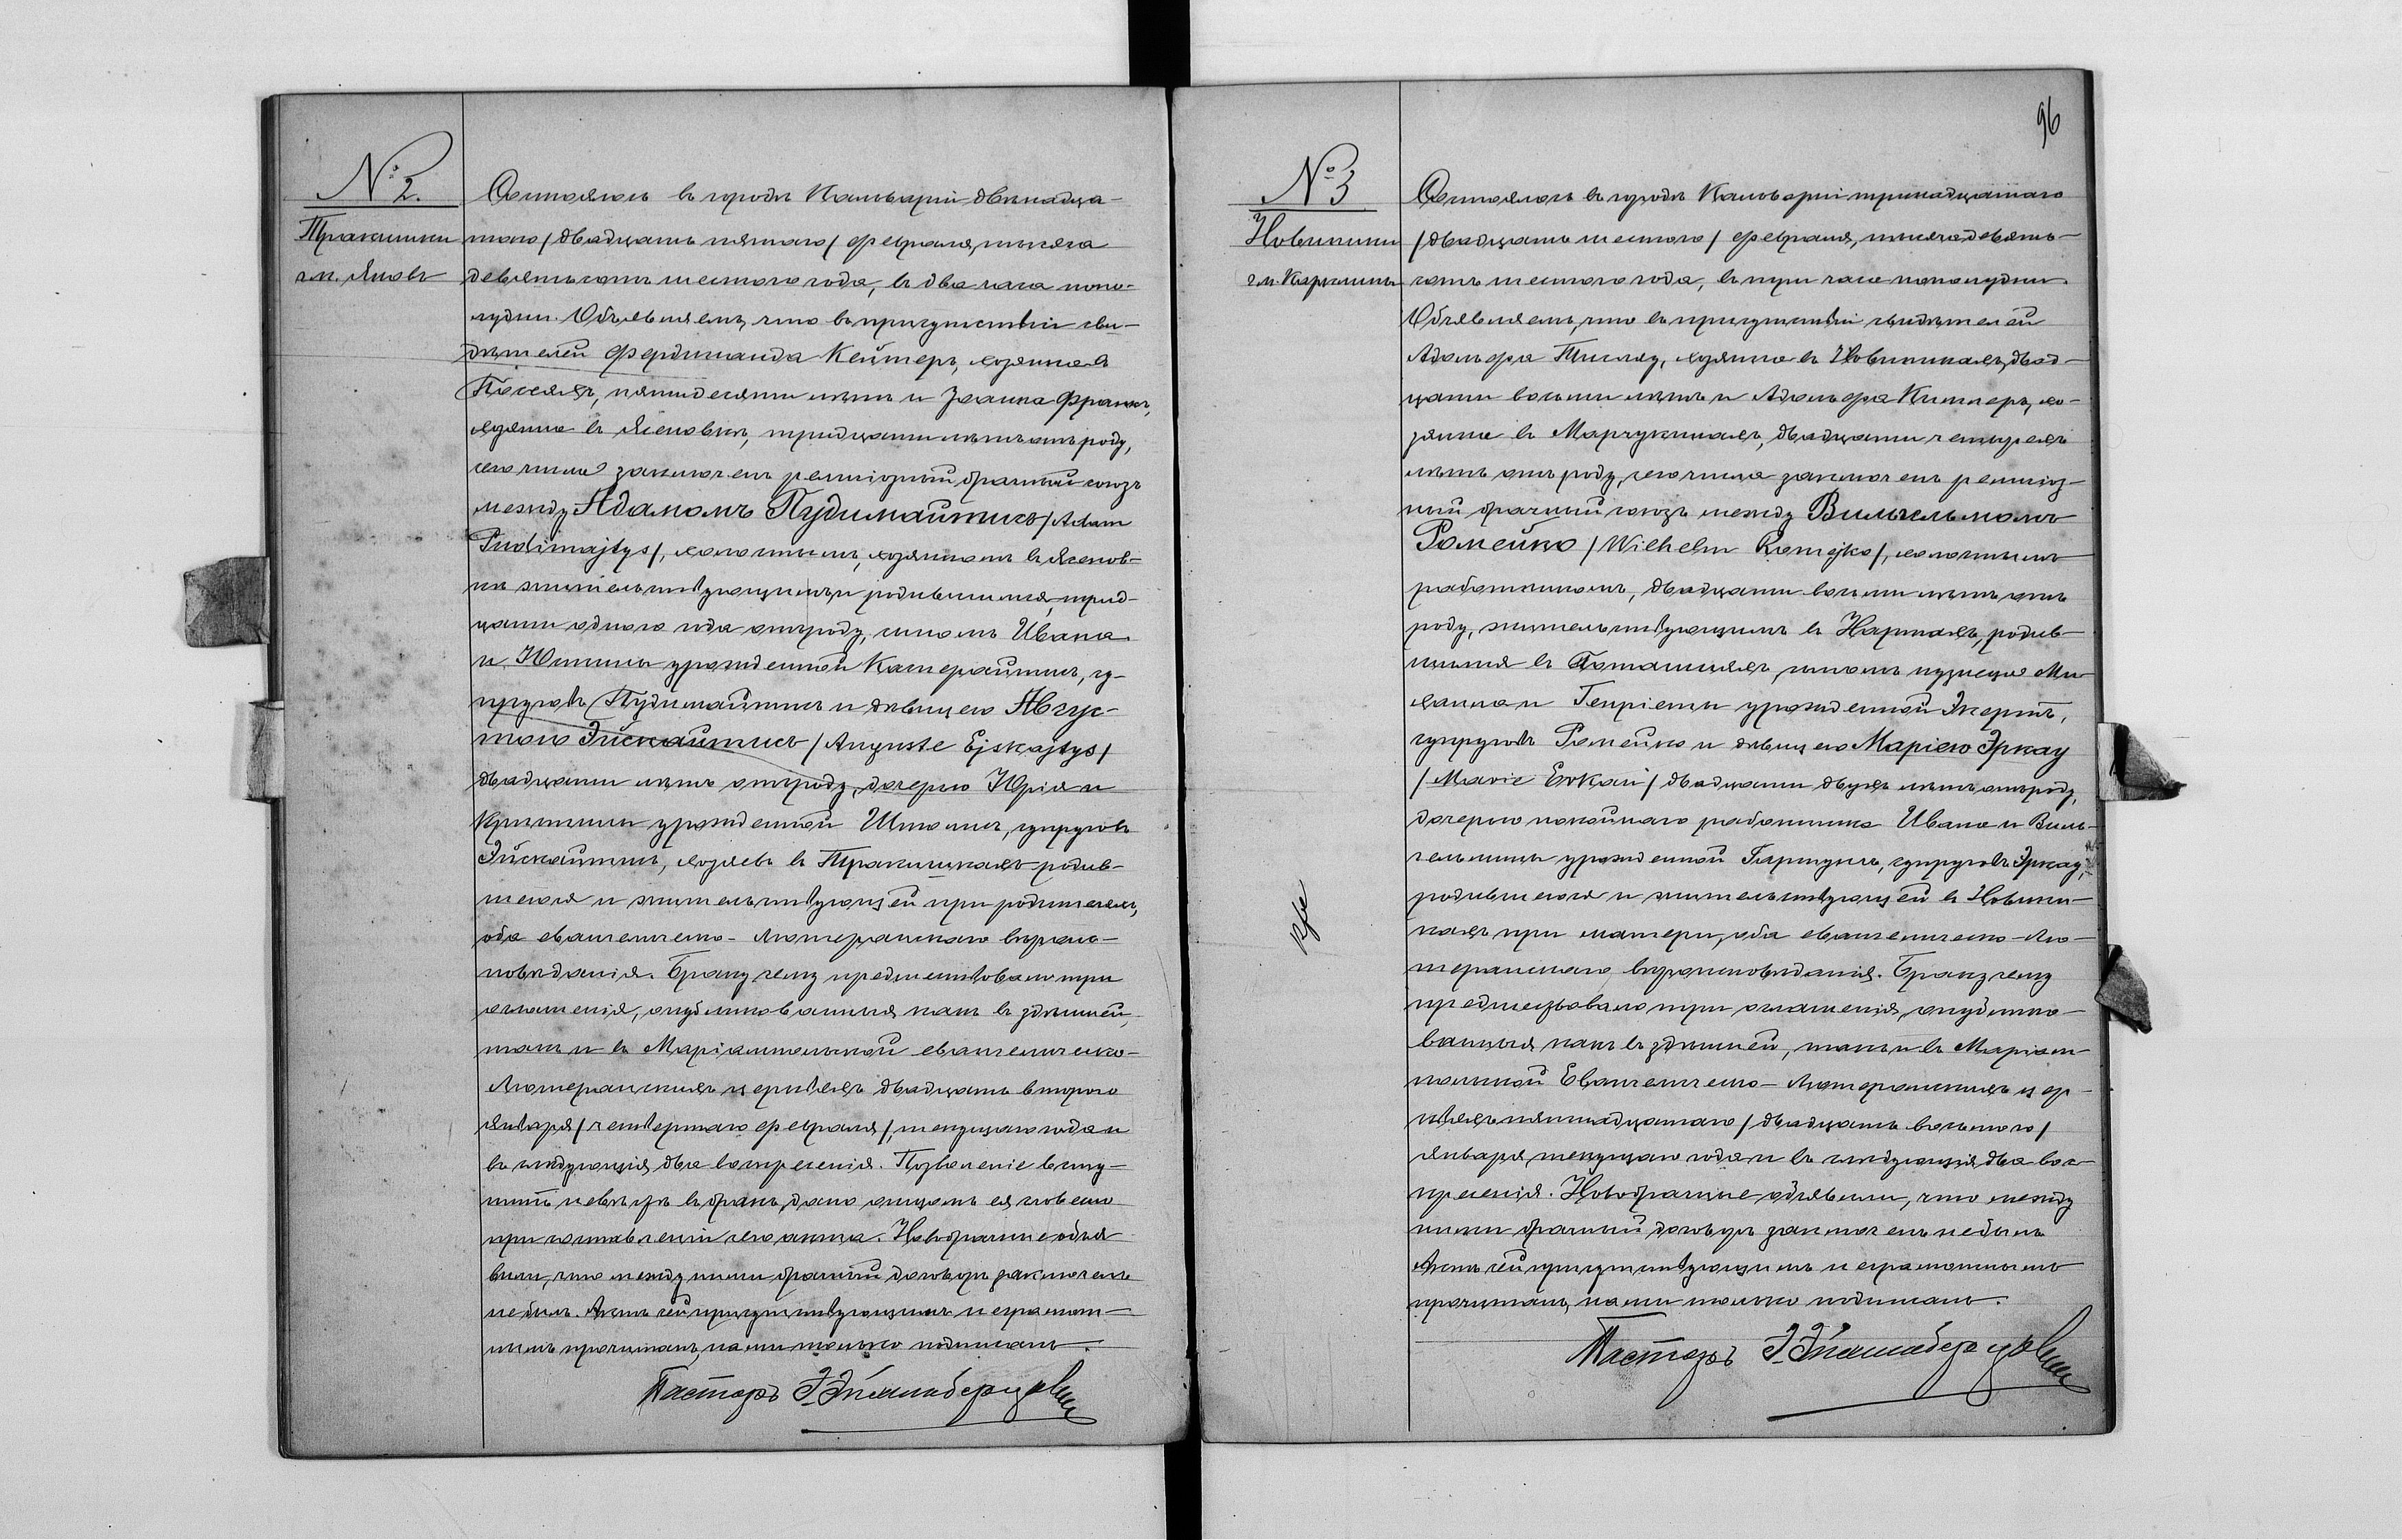 № 2.
Тракишки
гм. Яновъ
Состоялось въ городѣ Кальваріи двѣнадца-
таго /двадцать пятаго/ февраля, тысяча
девятьсотъ шестого года, въ два часа попо-
лудни. Объявляемъ, что въ присутствіи сви-
дѣтелей Фердинанда Кеймеръ, хозяина въ
лѣтъ и Іоанна Франкъ,
хозяина въ Ясеновкѣ, тридцати лѣтъ отъ роду,
сего числа заключенъ религіозный брачный союзъ
между Адамомъ Пудимайтисъ /Adam
Pudimajtys/, холостымъ, хозяиномъ въ Ясенов-
кѣ жительствующимъ и родившимся, трид-
цати одного года отъ роду, сыномъ Ивана
и урожденной супруговъ Пудимайтисъ и дѣвицею Авгус-
тою Эйскайтисъ /Auguste Ejskajtys/
двадцати лѣтъ отъ роду, дочерью Юрія и
Кристины урожденной супруговъ
Эйскайтисъ, хозяевъ въ Тракишкахъ родив-
шеюся и жительствующей при родителяхъ,
оба евангелическо-Лютеранскаго вѣроис-
повѣданія. Браку сему предшествовало три
оглашенія, опубликованныя какъ въ здѣшней,
такъ и въ Маріампольской евангелическо-
Лютеранскихъ церквахъ двадцать второго
января /четвертаго февраля/, текущаго года и
въ слѣдующія два воскресенія. Позволеніе всту-
пить невѣстѣ въ бракъ, дано отцомъ ея словесно
при составленіи сего акта. Новобрачные объя-
вили, что между ними брачный договоръ заключенъ
не былъ. Актъ сей присутствующимъ неграмот-
нымъ прочитанъ, нами только подписанъ.
Пасторъ
96
№ 3
Новиники
гм. Карклины
Состоялось въ городѣ Кальваріи тринадцатаго
/двадцать шестого/ февраля, тысяча девять-
сотъ шестого года, въ три часа пополудни.
Объявляемъ, что въ присутствіи свидѣтелей
Адольфа хозяина въ Новиникахъ, двад-
цати восьми лѣтъ и Адольфа хо-
зяина въ двадцати четырехъ
лѣтъ отъ роду, сего числа заключенъ религіоз-
ный брачный союзъ между Вильгельмомъ
Ромейко /Wilhelm Romejko/, холостымъ
работникомъ, двадцати восьми лѣтъ отъ
роду, жительствующимъ въ родив-
шимся въ сыномъ кузнеца Ми-
хаила и Генріеты урожденной
супруговъ Ромейко и дѣвицею Маріею Эркау
/Marie Erkau/ двадцати двухъ лѣтъ отъ роду,
дочерью покойнаго работника Ивана и Виль-
гельмины урожденной супруговъ Эркау,
родившеюся и жительствующей въ Новини-
кахъ при матери, оба евангелическо-Лю-
теранскаго вѣроисповѣданія. Браку сему
предшествовало три оглашенія, опублико-
ванныя какъ въ здѣшней, такъ и въ Маріам-
польской Евангелическо-Лютеранскихъ цер-
квахъ пятнадцатаго /двадцать восьмого/
января, текущаго года и въ слѣдующія два вос-
кресенія. Новобрачные объявили, что между
ними брачный договоръ заключенъ не былъ.
Актъ сей присутствующимъ неграмотнымъ
прочитанъ, нами только подписанъ.
Пасторъ